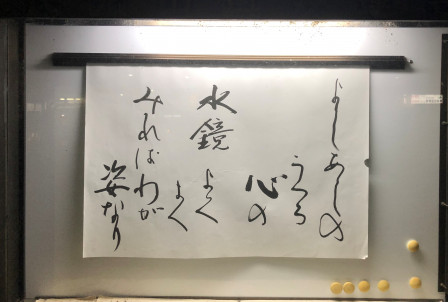 よしあしの
うつる
心の
水鏡
よく
よく
みればわが
姿なり